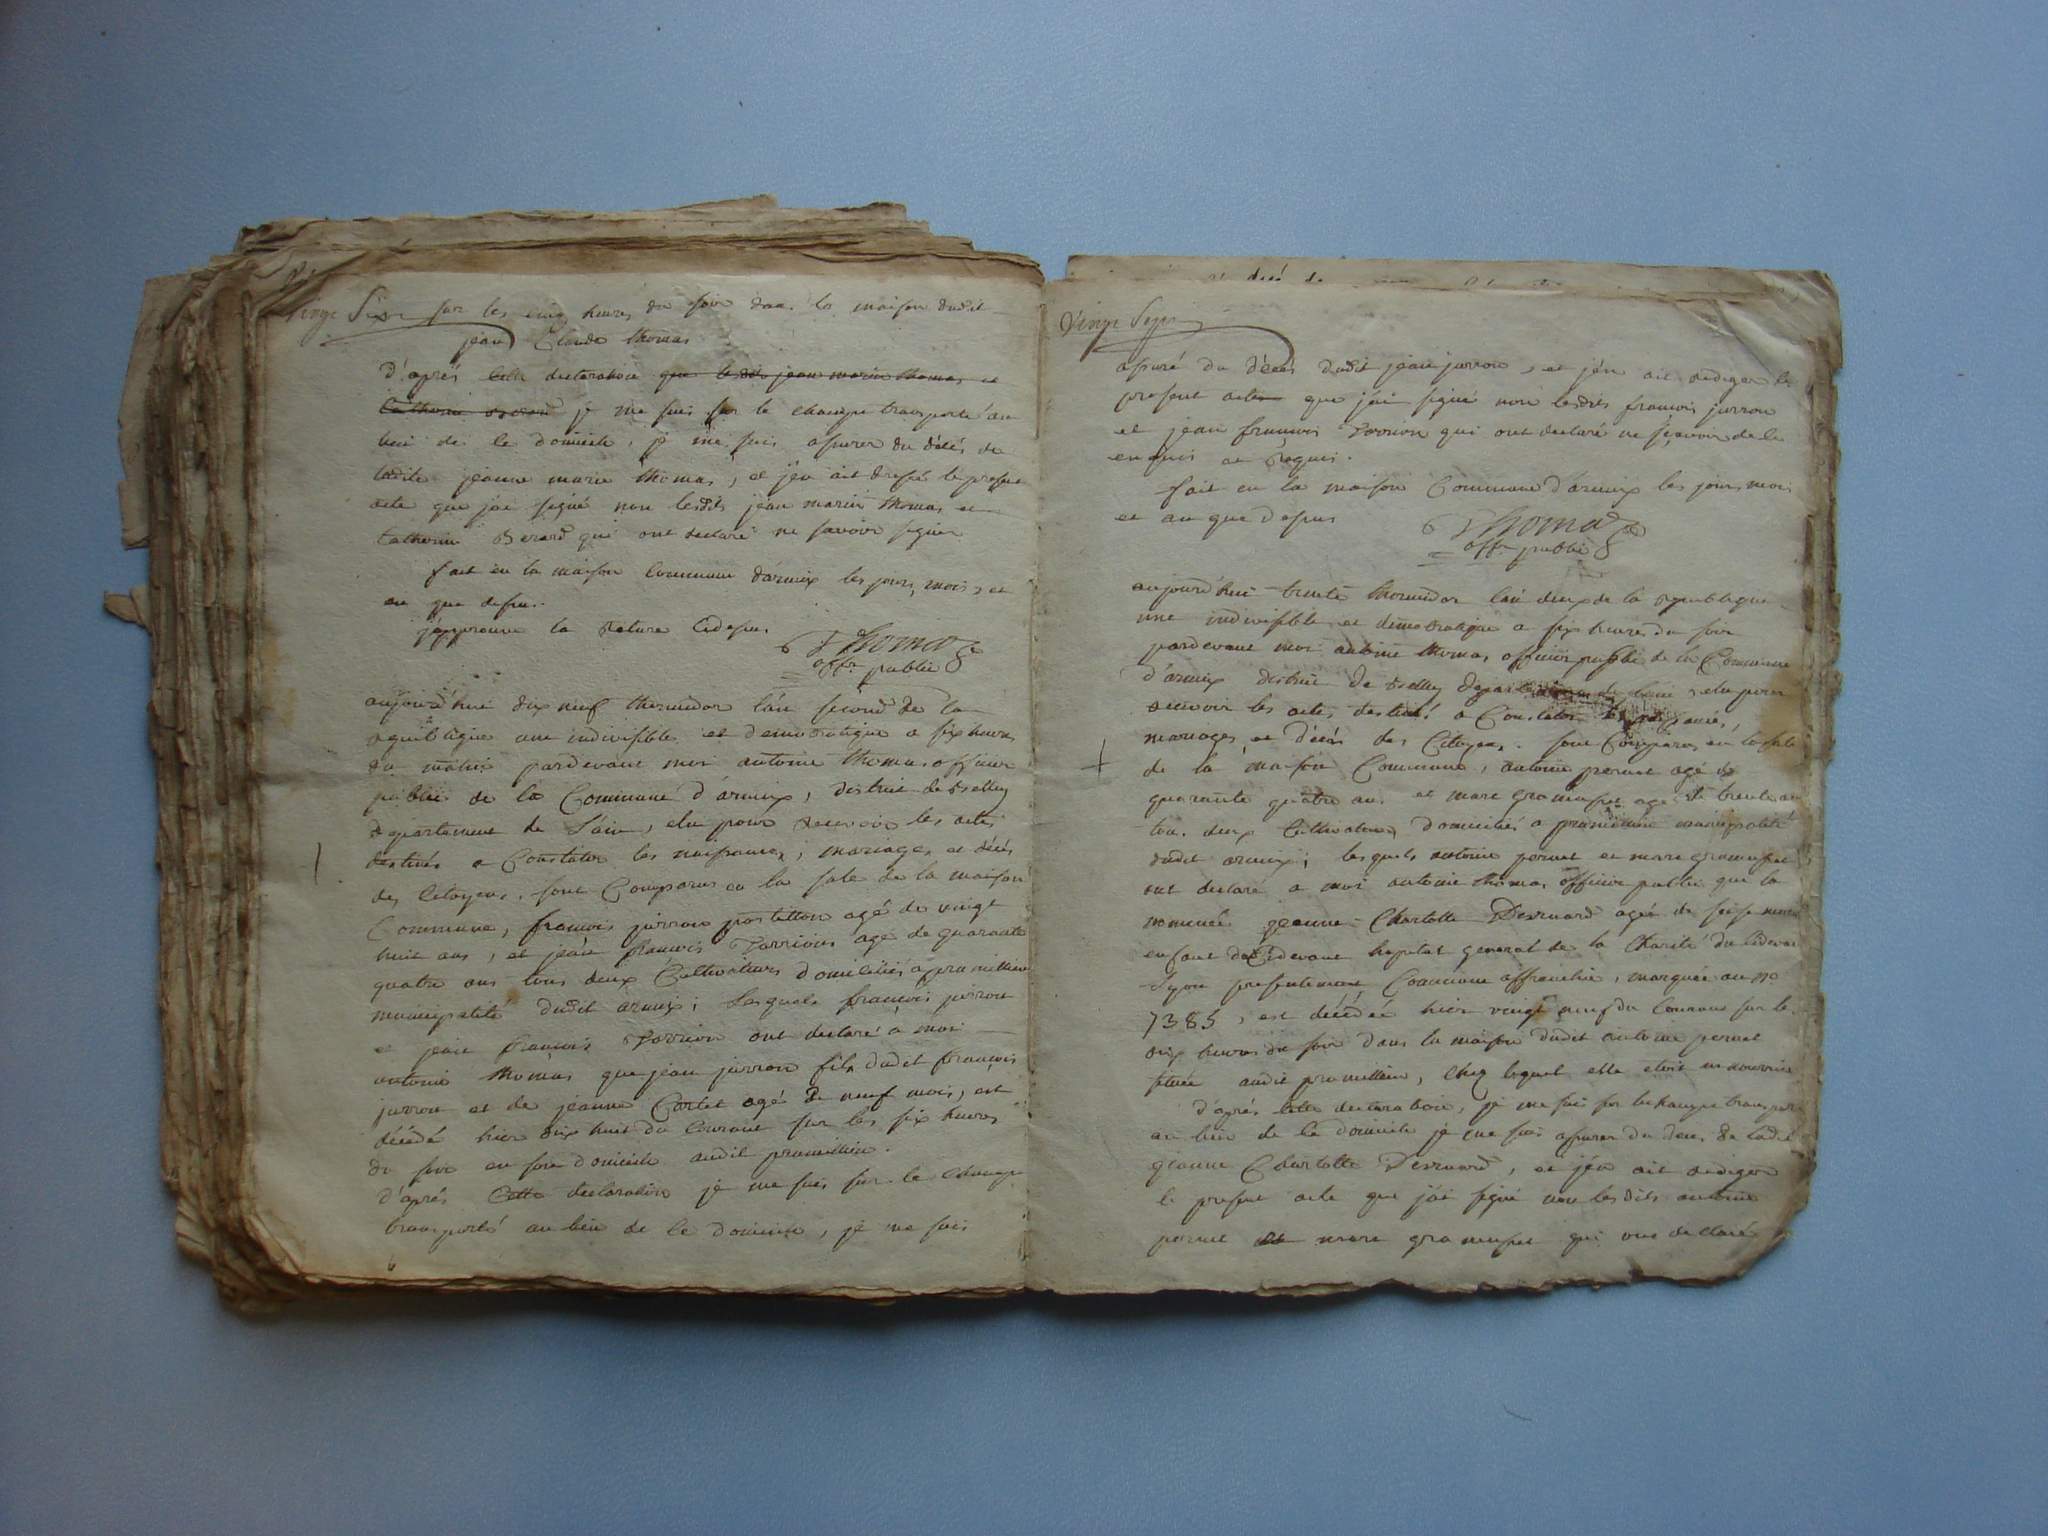 Vingt Six sur les cinq heures du soir dans la maison dudit
jean Claude thomas
d'aprés cette declaration que ledit jean marie thomas et
Catherine Berard je me suis sur le champ transporté au
lieu de le domicile, je me suis assurer du décés de
ladite jeanne marie thomas, et jen ait dressé le present
acte que jai signé non lesdits jean marie thomas et
Catherine Berard qui ont declaré ne savoir signer
fait en la maison Commune darmix les jours, mois, et
an que dessus.
japprouve la rature cidessus
Thomas
offr public
aujourd'hui dix neuf thermidor lan second de la
republique une indivisible et democratique a six heures
du matin pardevant moi antoine thomas officier
public de la Commune d'armix, district de Belley
departement de l'ain, elu pour recevoir les actes
destinés a Constater les naissances, mariages et décés
des Citoyens. sont Comparus en la sale de la maison
Commune, francois jurron postillon agé de vingt
huit ans, et jean francois Vorrion agé de quarante
quatre ans tous deux Cultivateurs domiciliés a premillieu
municipalité dudit armix; lesquels françois jurron
et jean francois Vorrion ont declaré a moi
antoine thomas que jean jurron fils dudit françois
jurron et de jeanne Cortet agé de neuf mois, est
décédé hier dix huit du Courant sur les six heures
du soir en son domicile audit premillieu.
d'aprés Cette declaration je me suis sur le champ
transporté au lieu de le domicile, je me suis
Vingt Sept
assuré du décés dudit jean jurron, et jen ait rediger le
present acte que jai signé non lesdits francois jurron
et jean françois Vorrion qui ont declaré ne sçavoir de le
enquis et requis.
fait en la maison Commune d'armix les jours mois
et an que dessus
Thomas
offr public
aujourd'hui trente thermidor lan deux de la republique
une indivisible et democratique a six heures du soir
pardevant moi antoine thomas officier public de la Commune
d'armix district de Belley departement de lain, elu pour
recevoir les actes destinés a Constater les naissances,
mariages, et décés des Citoyens. sont Comparus en la sale
de la maison Commune, antoine pernet agé de
quarante quatre ans et marc gramusset agé de trente an
tous deux Cultivateurs domiciliés a premillieu municipalité
dudit armix; lesquels antoine pernet et marc gramusset
ont declaré a moi antoine thomas officier public que la
nommée jeanne Charlotte Desruard agée de seise mois
enfant du Cidevant hopital general de la Charité du Cidevant
Lyon presentement Commune affranchie, marquée au no
7385, est décédée hier vingt neuf du Courant sur les
dix heures du soir dans la maison dudit antoine pernet
située audit premillieu, chez lequel elle etoit en nourrice
d'aprés cette declaration, je me suis sur le champ transporté
au lieu de le domicile je me suis assurer du deces de ladite
jeanne Charlotte Desruard, et jen ait rediger
le present acte que j'ai signé non lesdits antoine
pernet et marc gramusset qui ont declaré